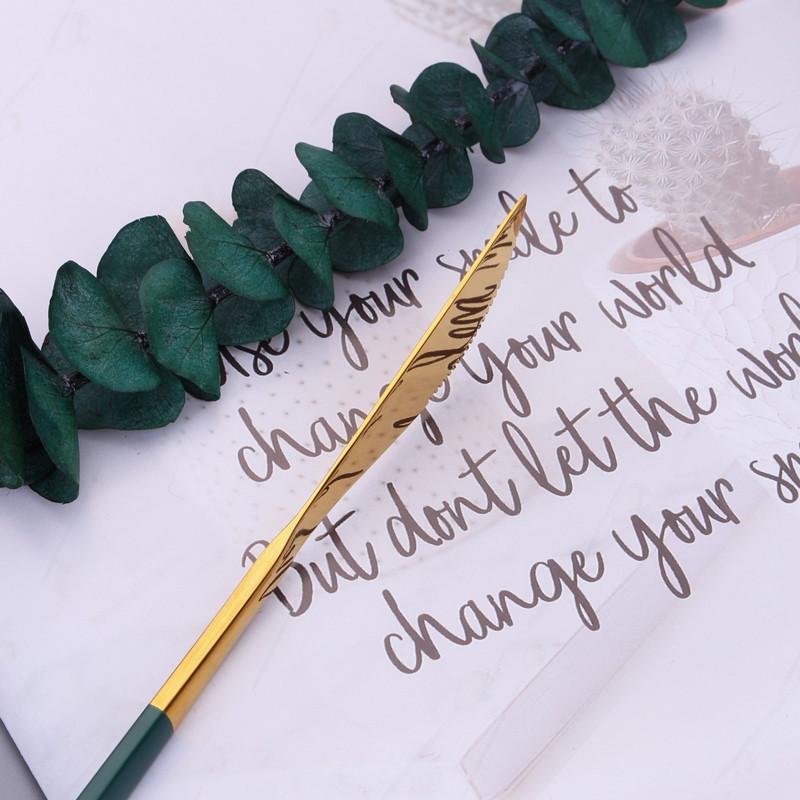 use your smile to
change your world
But dont let the world
change your sm